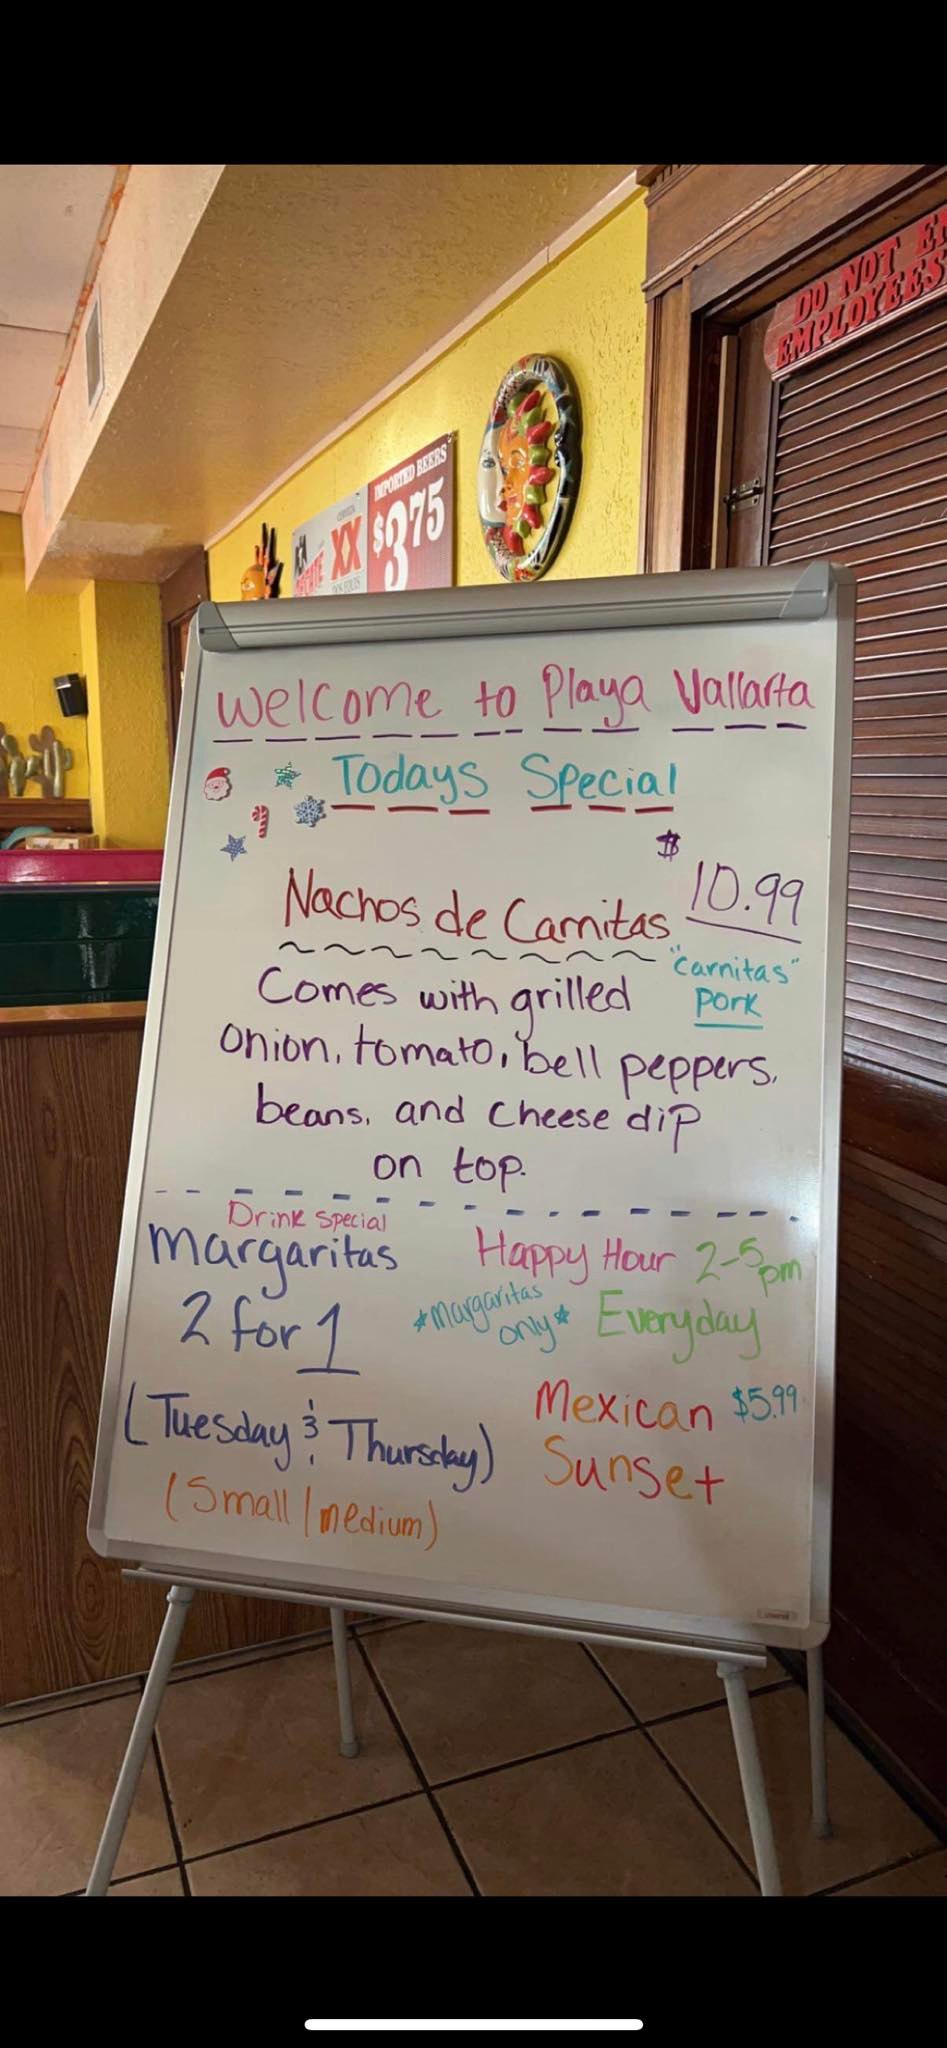 DO NOT
EMPLOYEES
IMPORTED BEERS
$3.75
XX
Welcome to Playa Vallarta
Todays Special
$10.99
Nachos de Carnitas
"carnitas"
pork
Comes with grilled
onion, tomato, bell peppers,
beans, and cheese dip
on top.
Drink Special
Margaritas
2 for 1
(Tuesday & Thursday)
(Small/medium)
Happy Hour 2-5pm
*Margaritas only* Everyday
Mexican $5.99
Sunset